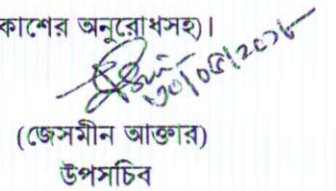 কাশের অনুরোধসহ)।
৩০/০৫/২০১৮
(জেসমীন আক্তার)
উপসচিব